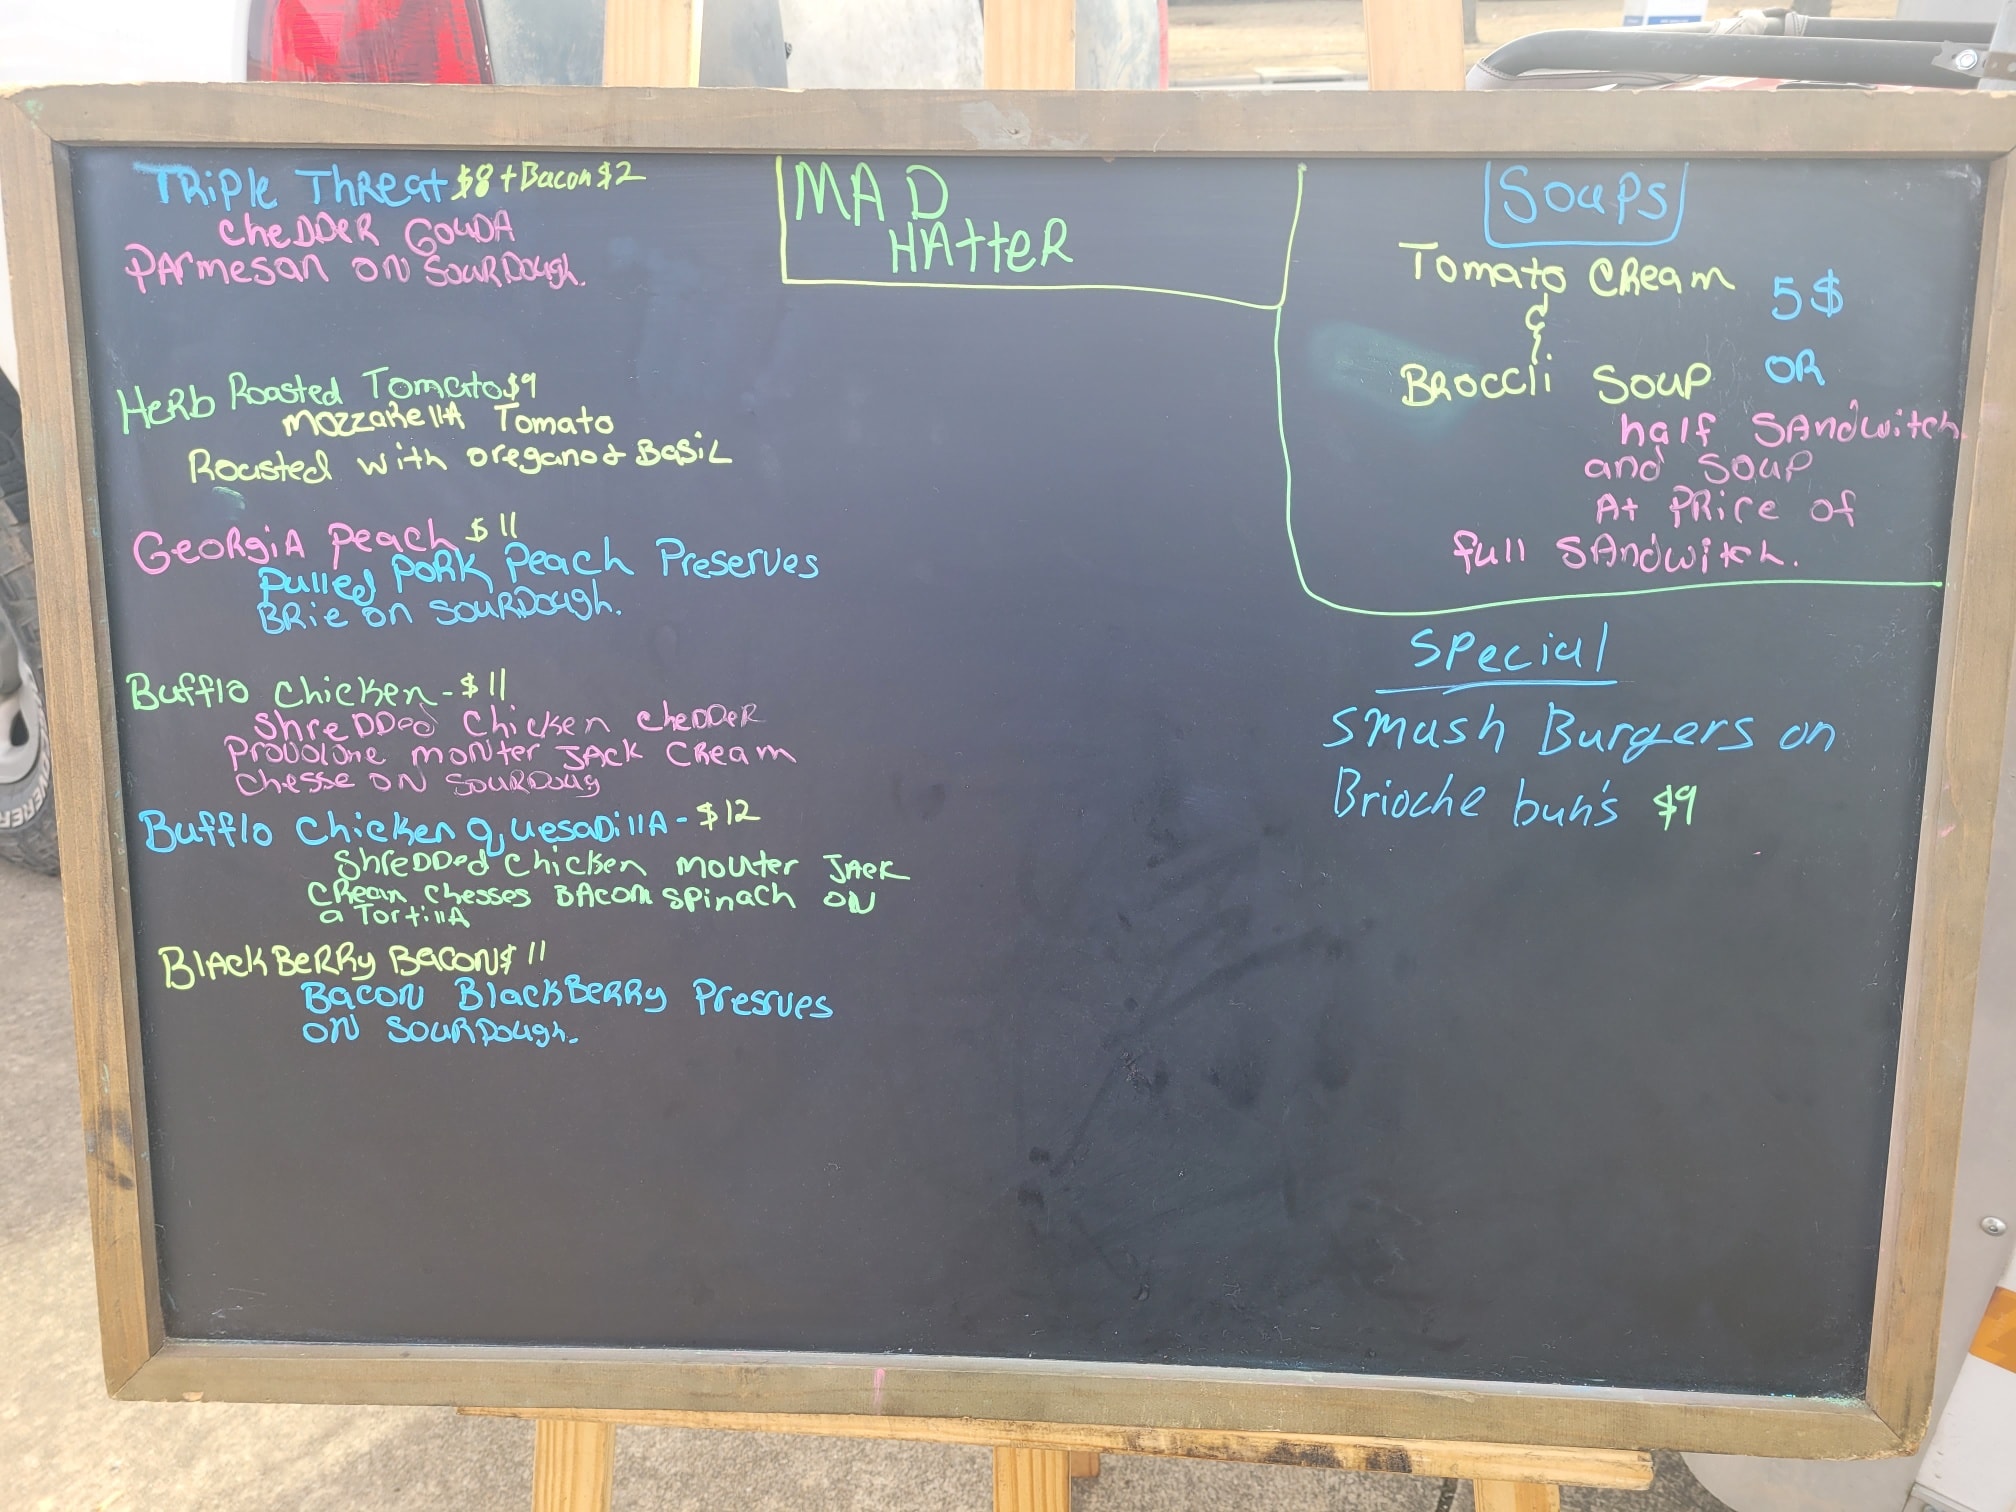 TRiPle THReat $8 + Bacon $2
CheDDeR GOUDA
PARmesan ON SOURDough.
HeRB Roasted Tomato $9
MOZZARellA Tomato
Roasted with oregano & BASiL
GeoRgiA Peach $11
Pulled PORK Peach Preserves
BRie on SOURDough.
Bufflo Chicken - $11
ShreDDed Chicken CheDDeR
Provolone monter JACK CReam
Chesse ON SOURDoug
Bufflo Chicken quesaDillA - $12
ShreDDed Chicken monter JAcK
CReam Chesses BAcon spinach ON
a TortillA
BlAckBeRRy BACON $11
BACON BlackBeRRy Presrves
ON SOURDough.
MAD
HAtteR
Soups
Tomato CReam 5$
&
BRoccli Soup OR
half SAndwitch
and Soup
At PRice of
full SAndwitch.
Special
Smash Burgers on
Brioche bun's $9